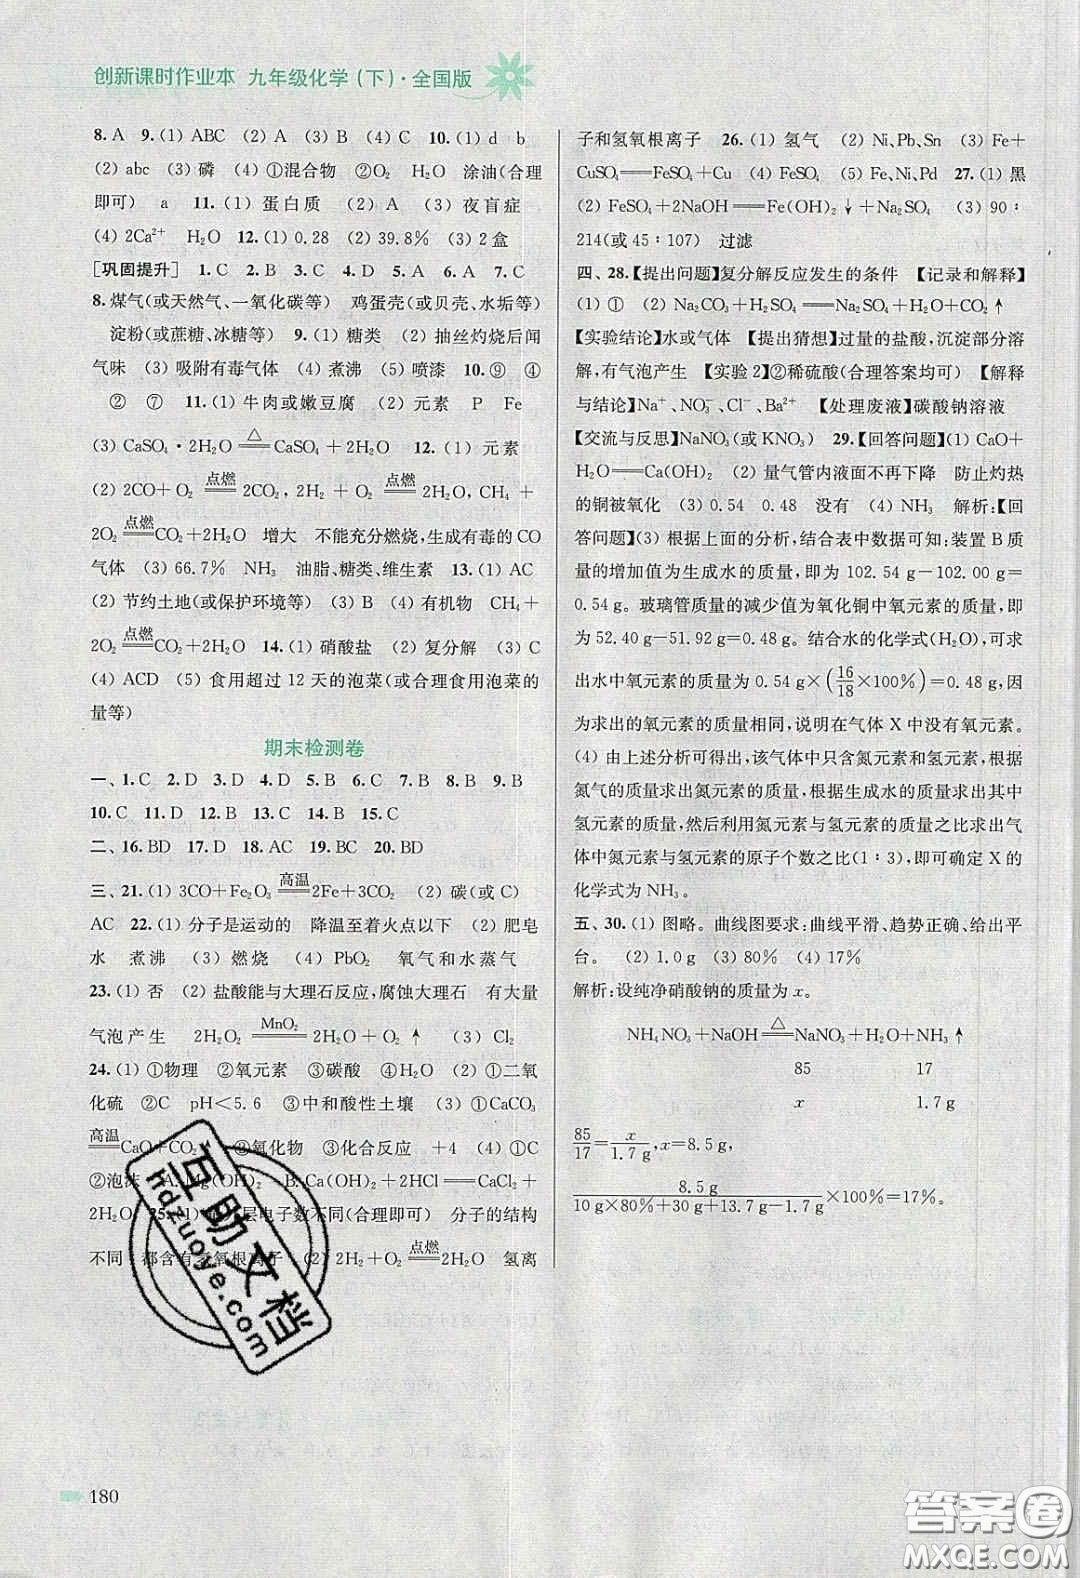 创新课时作业本 九年级化学(下)·全国版
8. A 9. (1) ABC (2) A (3) B (4) C 10. (1) d b
(2) abc (3) 磷 (4) ①混合物 ②O₂ H₂O 涂油(合理
即可) a 11. (1) 蛋白质 (2) A (3) 夜盲症
(4) 2Ca²⁺ H₂O 12. (1) 0.28 (2) 39.8% (3) 2盒
[巩固提升] 1. C 2. B 3. C 4. C 5. A 6. A 7. C
8. 煤气(或天然气、一氧化碳等) 鸡蛋壳(或贝壳、水垢等)
淀粉(或蔗糖、冰糖等) 9. (1) 糖类 (2) 抽丝灼烧后闻
气味 (3) 吸附有毒气体 (4) 煮沸 (5) 喷漆 10. ⑨ ④
② ⑦ 11. (1) 牛肉或嫩豆腐 (2) 元素 P Fe
(3) CaSO₄·2H₂O ══△══ CaSO₄+2H₂O 12. (1) 元素
(2) 2CO+O₂ ══点燃══ 2CO₂, 2H₂+O₂ ══点燃══ 2H₂O, CH₄+
2O₂ ══点燃══ CO₂+2H₂O 增大 不能充分燃烧,生成有毒的CO
气体 (3) 66.7% NH₃ 油脂、糖类、维生素 13. (1) AC
(2) 节约土地(或保护环境等) (3) B (4) 有机物 CH₄+
2O₂ ══点燃══ CO₂+2H₂O 14. (1) 硝酸盐 (2) 复分解 (3) C
(4) ACD (5) 食用超过12天的泡菜(或合理食用泡菜的
量等)
期末检测卷
一、1. C 2. D 3. D 4. D 5. B 6. C 7. B 8. B 9. B
10. C 11. D 12. B 13. C 14. B 15. C
二、16. BD 17. D 18. AC 19. BC 20. BD
三、21. (1) 3CO+Fe₂O₃ ══高温══ 2Fe+3CO₂ (2) 碳(或C)
AC 22. (1) 分子是运动的 降温至着火点以下 (2) 肥皂
水 煮沸 (3) 燃烧 (4) PbO₂ 氧气和水蒸气
23. (1) 否 (2) 盐酸能与大理石反应,腐蚀大理石 有大量
气泡产生 2H₂O₂ ══MnO₂══ 2H₂O+O₂↑ (3) Cl₂
24. (1) ①物理 ②氧元素 ③碳酸 ④H₂O (2) ①二氧
化硫 ②C pH<5.6 ③中和酸性土壤 (3) ①CaCO₃
══高温══ CaO+CO₂ ②氧化物 ③化合反应 +4 (4) ①C
②泡沫 A. Mg(OH)₂ B. Ca(OH)₂+2HCl══CaCl₂+
2H₂O 25. (1) 层电子数不同(合理即可) 分子的结构
不同 都含有氢氧根离子 (2) 2H₂+O₂ ══点燃══ 2H₂O 氢离
子和氢氧根离子 26. (1) 氢气 (2) Ni,Pb,Sn (3) Fe+
CuSO₄══FeSO₄+Cu (4) FeSO₄ (5) Fe,Ni,Pd 27. (1) 黑
(2) FeSO₄+2NaOH══Fe(OH)₂↓+Na₂SO₄ (3) 90∶
214(或45∶107) 过滤
四、28.【提出问题】复分解反应发生的条件 【记录和解释】
(1) ① (2) Na₂CO₃+H₂SO₄══Na₂SO₄+H₂O+CO₂↑
【实验结论】水或气体 【提出猜想】过量的盐酸,沉淀部分溶
解,有气泡产生 【实验2】②稀硫酸(合理答案均可) 【解释
与结论】Na⁺、NO₃⁻、Cl⁻、Ba²⁺ 【处理废液】碳酸钠溶液
【交流与反思】NaNO₃(或KNO₃) 29.【回答问题】(1) CaO+
H₂O══Ca(OH)₂ (2) 量气管内液面不再下降 防止灼热
的铜被氧化 (3) 0.54 0.48 没有 (4) NH₃ 解析:【回
答问题】(3) 根据上面的分析,结合表中数据可知:装置B质
量的增加值为生成水的质量,即为102.54 g-102.00 g=
0.54 g。玻璃管质量的减少值为氧化铜中氧元素的质量,即
为52.40 g-51.92 g=0.48 g。结合水的化学式(H₂O),可求
出水中氧元素的质量为0.54 g×(16/18×100%)=0.48 g,因
为求出的氧元素的质量相同,说明在气体X中没有氧元素。
(4) 由上述分析可得出,该气体中只含氮元素和氢元素,根据
氮气的质量求出氮元素的质量,根据生成水的质量求出其中
氢元素的质量,然后利用氮元素与氢元素的质量之比求出气
体中氮元素与氢元素的原子个数之比(1∶3),即可确定X的
化学式为NH₃。
五、30. (1) 图略。曲线图要求:曲线平滑、趋势正确、给出平
台。 (2) 1.0 g (3) 80% (4) 17%
解析:设纯净硝酸钠的质量为x。
NH₄NO₃+NaOH══△══NaNO₃+H₂O+NH₃↑
85 17
x 1.7 g
85/17=x/1.7 g,x=8.5 g,
8.5 g/(10 g×80%+30 g+13.7 g-1.7 g)×100%=17%。
互助文档
hdzuoye.com
180
答案圈
MXQE.COM